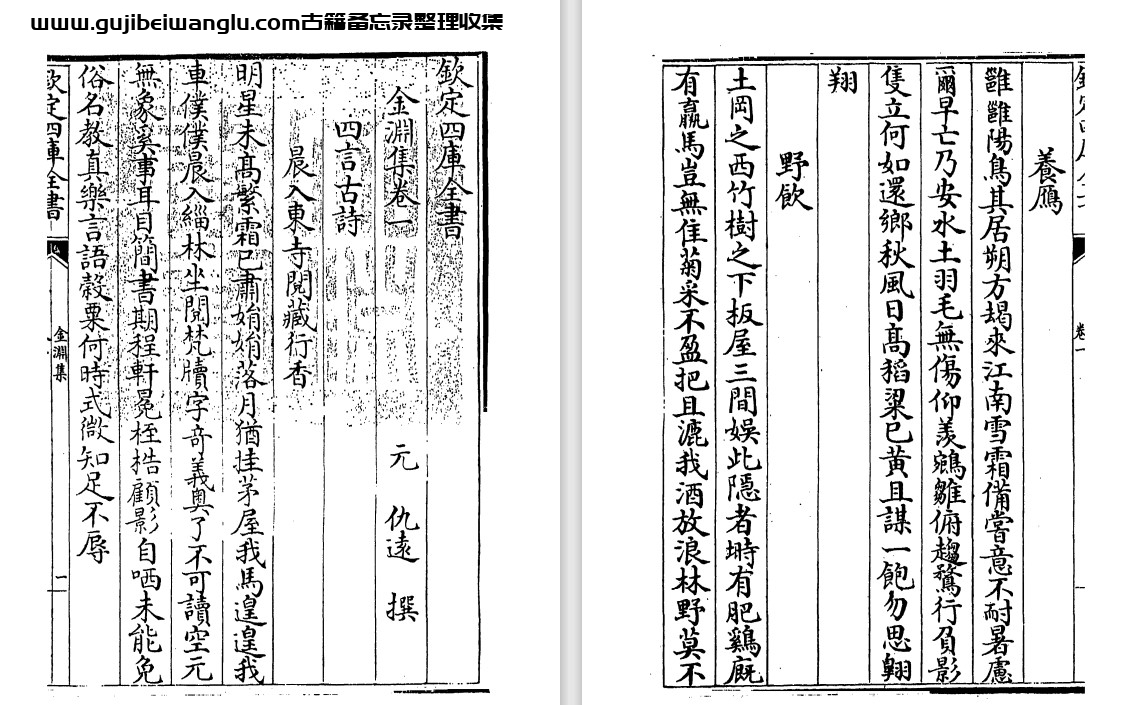 www.gujibeiwanglu.com古籍备忘录整理收集
欽定四庫全書
金淵集卷一
元 仇遠 撰
四言古詩
晨入東寺閱藏行香
明星未髙繁霜已肅娟娟落月猶挂茅屋我馬遑遑我
車僕僕晨入緇林坐閱梵牘字竒義奥了不可讀空元
無象奚事耳目簡書期程軒冕桎梏顧影自哂未能免
俗名教真樂言語穀粟何時式微知足不辱
欽定四庫全書
金淵集
一
卷一
養鴈
雝雝陽鳥其居朔方朅來江南雪霜備嘗意不耐暑慮
爾早亡乃安水土羽毛無傷仰羨鵷雛俯趨鶩行負影
隻立何如還鄉秋風日髙稻粱已黄且謀一飽勿思翺
翔
野飲
土岡之西竹樹之下板屋三間娯此隠者塒有肥鷄廐
有羸馬豈無隹菊采不盈把且漉我酒放浪林野莫不